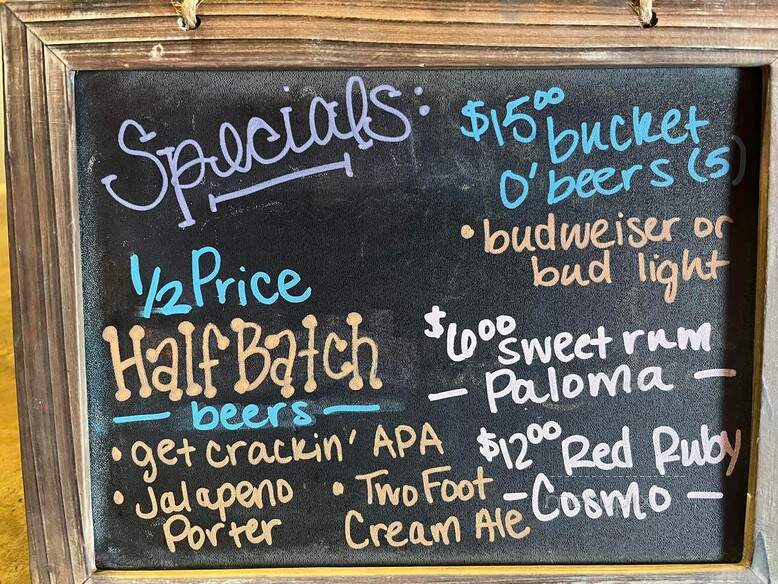 Specials:
1/2 Price
Half Batch
— beers —
• get crackin' APA
• Jalapeno
Porter
• Two Foot
Cream Ale
$15.00 bucket
O'beers (5)
• budweiser or
bud light
$6.00 sweet rum
— Paloma —
$12.00 Red Ruby
— Cosmo —